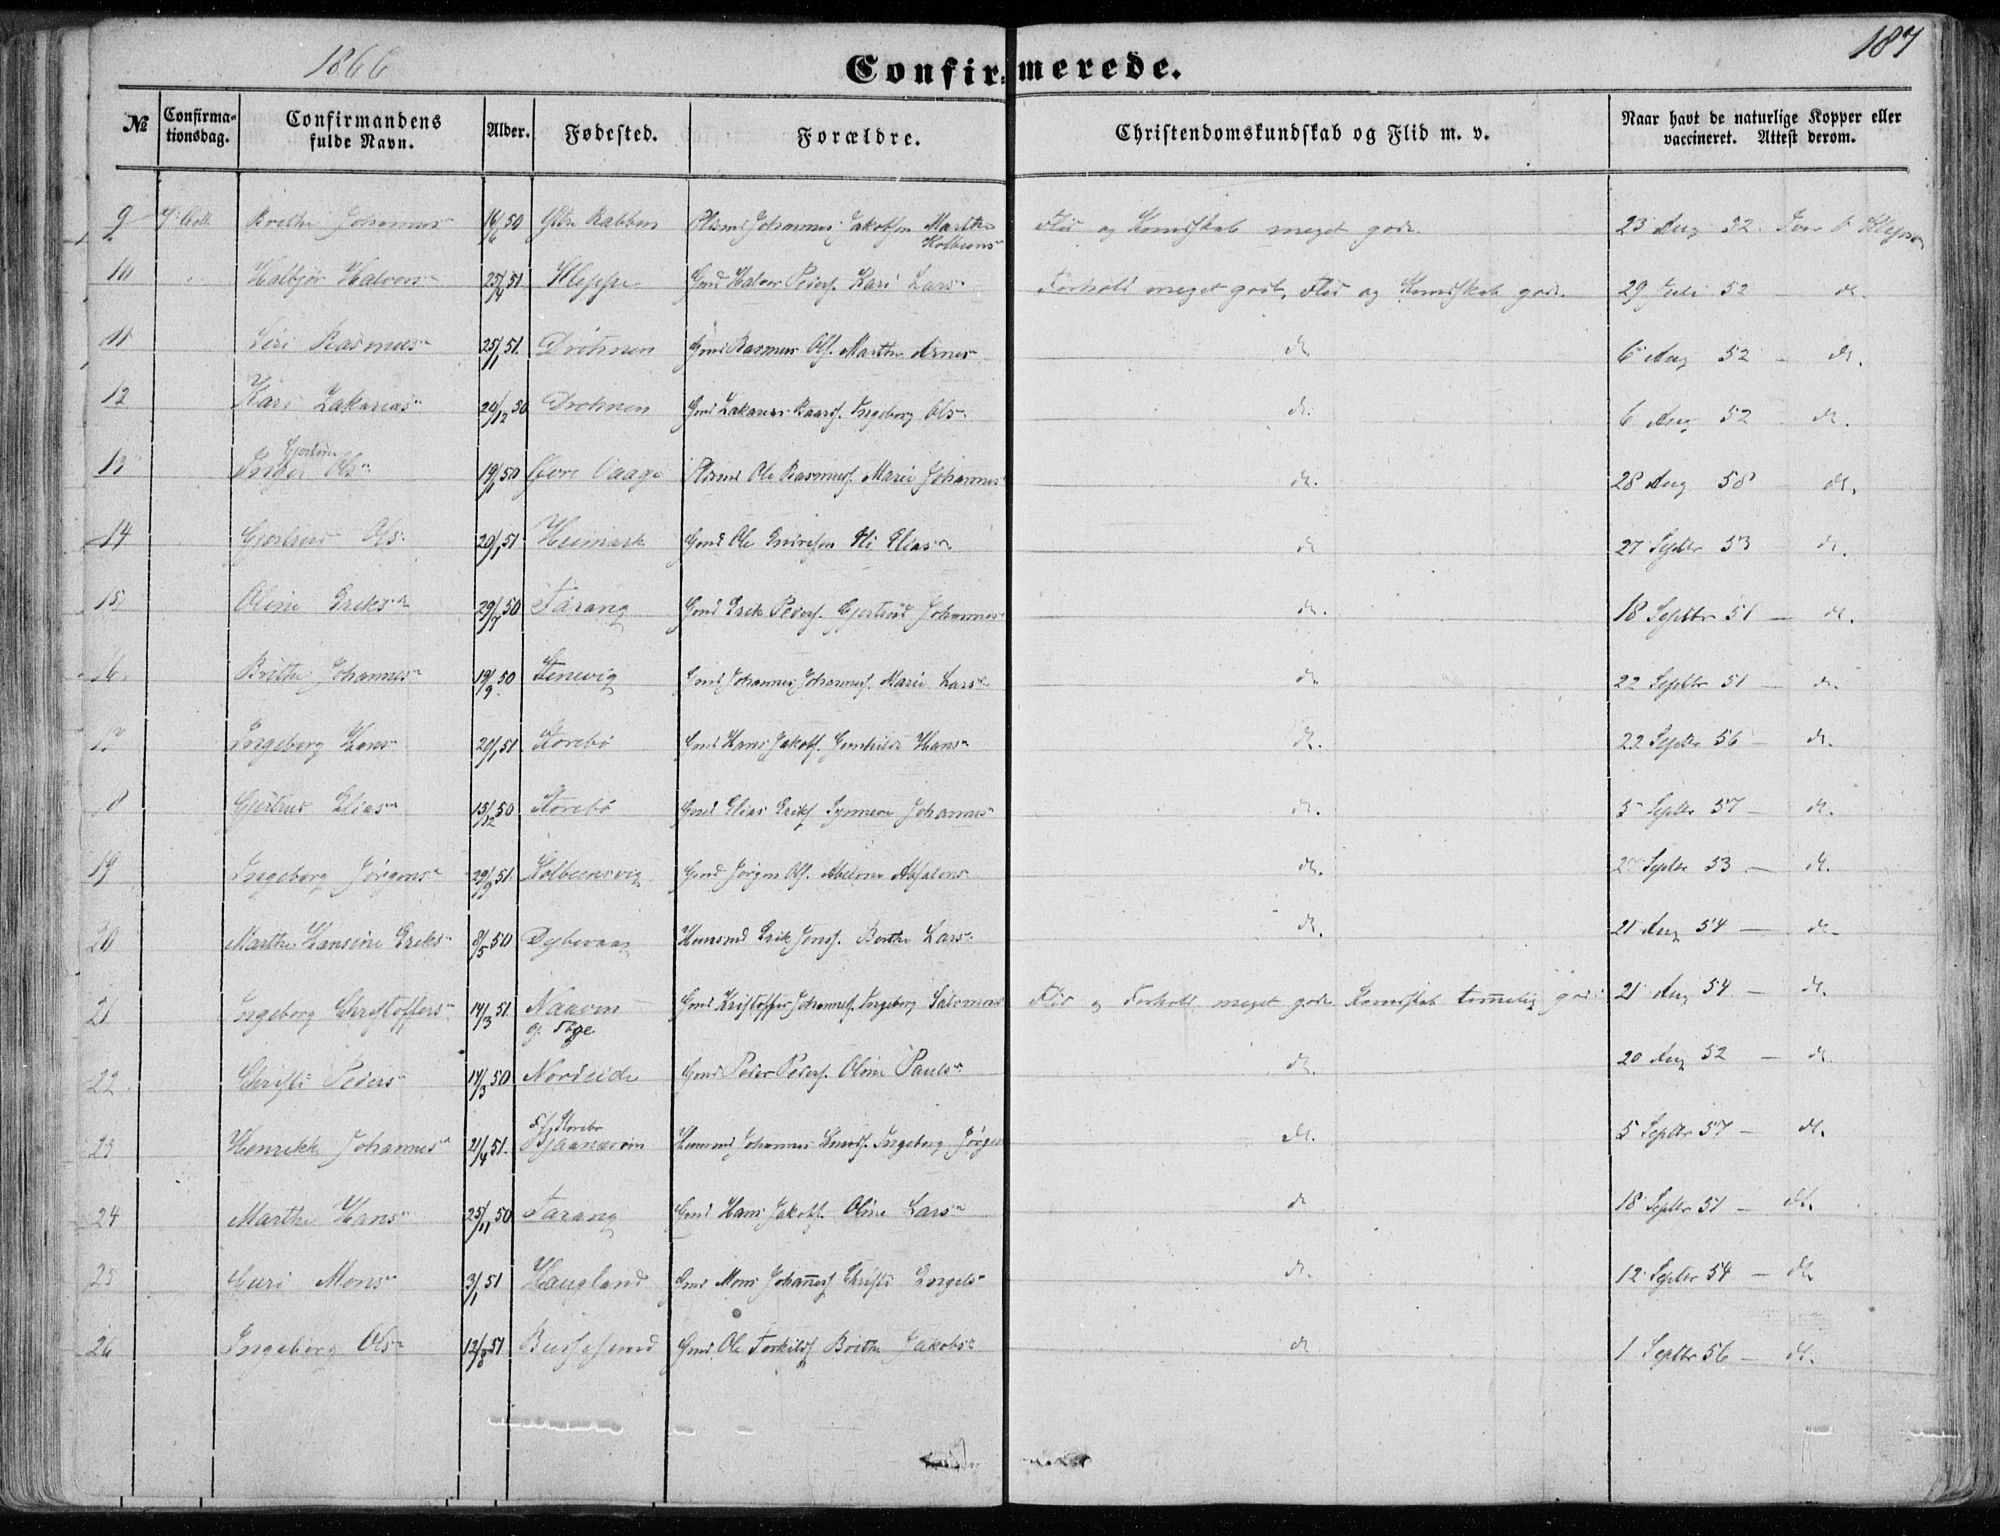 1866
Confirmerede.
187
№ Confirma-tionsdag. Confirmandens fulde Navn. Alder. Fødested. Forældre. Christendomskundskab og Flid m. v. Naar havt de naturlige Kopper eller vaccineret. Attest derom.
9 Brithe Johannes 16/6 50 Rabben Johannes Jakobsen Marthe Kolbeens Flid og Kundskab meget gode 23 Aug 52.
10 Halvors 25/4 51 Kleppe Gmd Halvor Peders. Kari Lars Forhold meget godt, Flid og Kundskab gode. 29 Juli 52 — do.
11 Siri Rasmus 25/11 51. Drönen Gmd Rasmus Ols. Marthe Arnes do 6 Aug 52 — do.
12 Kari Zakarias 20/12 50 Drönen Gmd Zakarias Baards. Ingeborg Ols do. 6 Aug 52 do.
13 Inger Gjertine Ols Vaage Ole Rasmuss. Marie Johannes do. 28 Aug 58 do.
14 Gjertrud Ols 20/1 51 Heimark Gmd Ole Eli Elias do 27 Septbr 53 do.
15 Oline Eriks 29/7 50 Tarang Gmd Erik Peders. Gjertrud Johannes do. 18 Septbr 51 — do.
16. Brithe Johannes 19/9 50 Stenevig Gmd Johannes Johanness. Marie Lars do 22 Septbr 51 — do.
17 Ingeborg Hans 20/1 51 Storebö Gmd Hans Jakobs. Gunhilde Hans do. 22 Septbr 56 — do.
8 Gjertrud Elias 15/12 50 Storebö Gmd Elias Eriks Synneve Johannes do. 5 Septbr 57 — do.
19 Ingeborg Jörgens 29/9 51. Kolbeensvig Gmd Jörgen Ols. Abelone Absalons do. Septbr 53 — do.
20 Marthe Hansine Eriks 8/5 50 Dybevaag Huusmd Erik Jenss. Berthe Lars do. 21 Aug 54 — do
21 Ingeborg Christoffers 14/3 51 Naaven Gmd Kristoffer Johanness. Ingeborg Salomons Flid og Forhold meget gode Kundskab temelig god 21 Aug 54 — do.
22. Christi Peders 14/3 50 Nordeide Gmd Peder Peders. Oline Pauls do. 20 Aug 52 — do
23 Henrikke Johannes 21/4 51. Storebö Bjaanæsöen Huusmd Johannes Knuds. Ingeborg Jörgens do. 5 Septbr 57 — do.
24 Marthe Hans 25/11 50 Tarang Gmd Hans Jakobs. Oline Lars do 18 Septbr 51 — do.
25 Guri Mons 3/1 51 Haugland Gmd Mons Johaness Christi Engels do. 12 Septbr 54 — do.
26 Ingeborg Ols 12/8 51 Bussesund Gmd. Ole Torkilds Brithe Jakobs do 1 Septbr 56 — do.